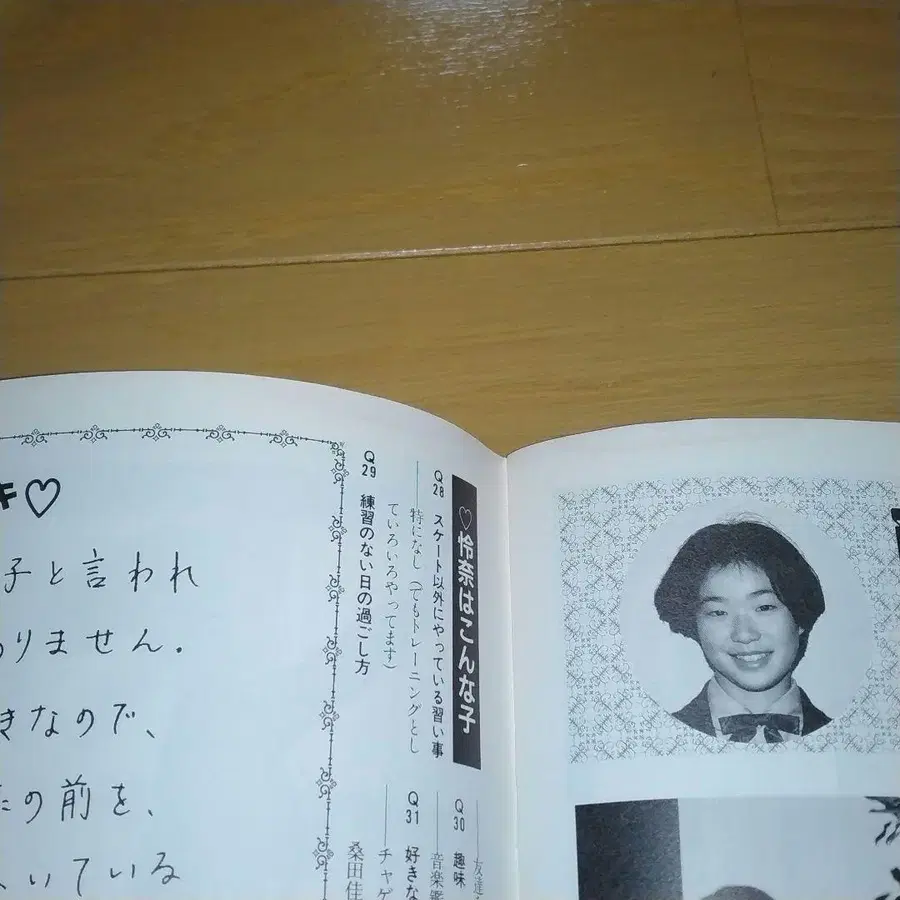 ♡怜奈はこんな子
Q28 スケート以外にやっている習い事
――特になし(でもトレーニングとし
ていろいろやってます)
Q29 練習のない日の過ごし方
――友達
Q30 趣味
――音楽鑑
Q31 好きな
――チャゲ
桑田佳
キ♡
子と言われ
りません.
きなので、
の前を、
いている